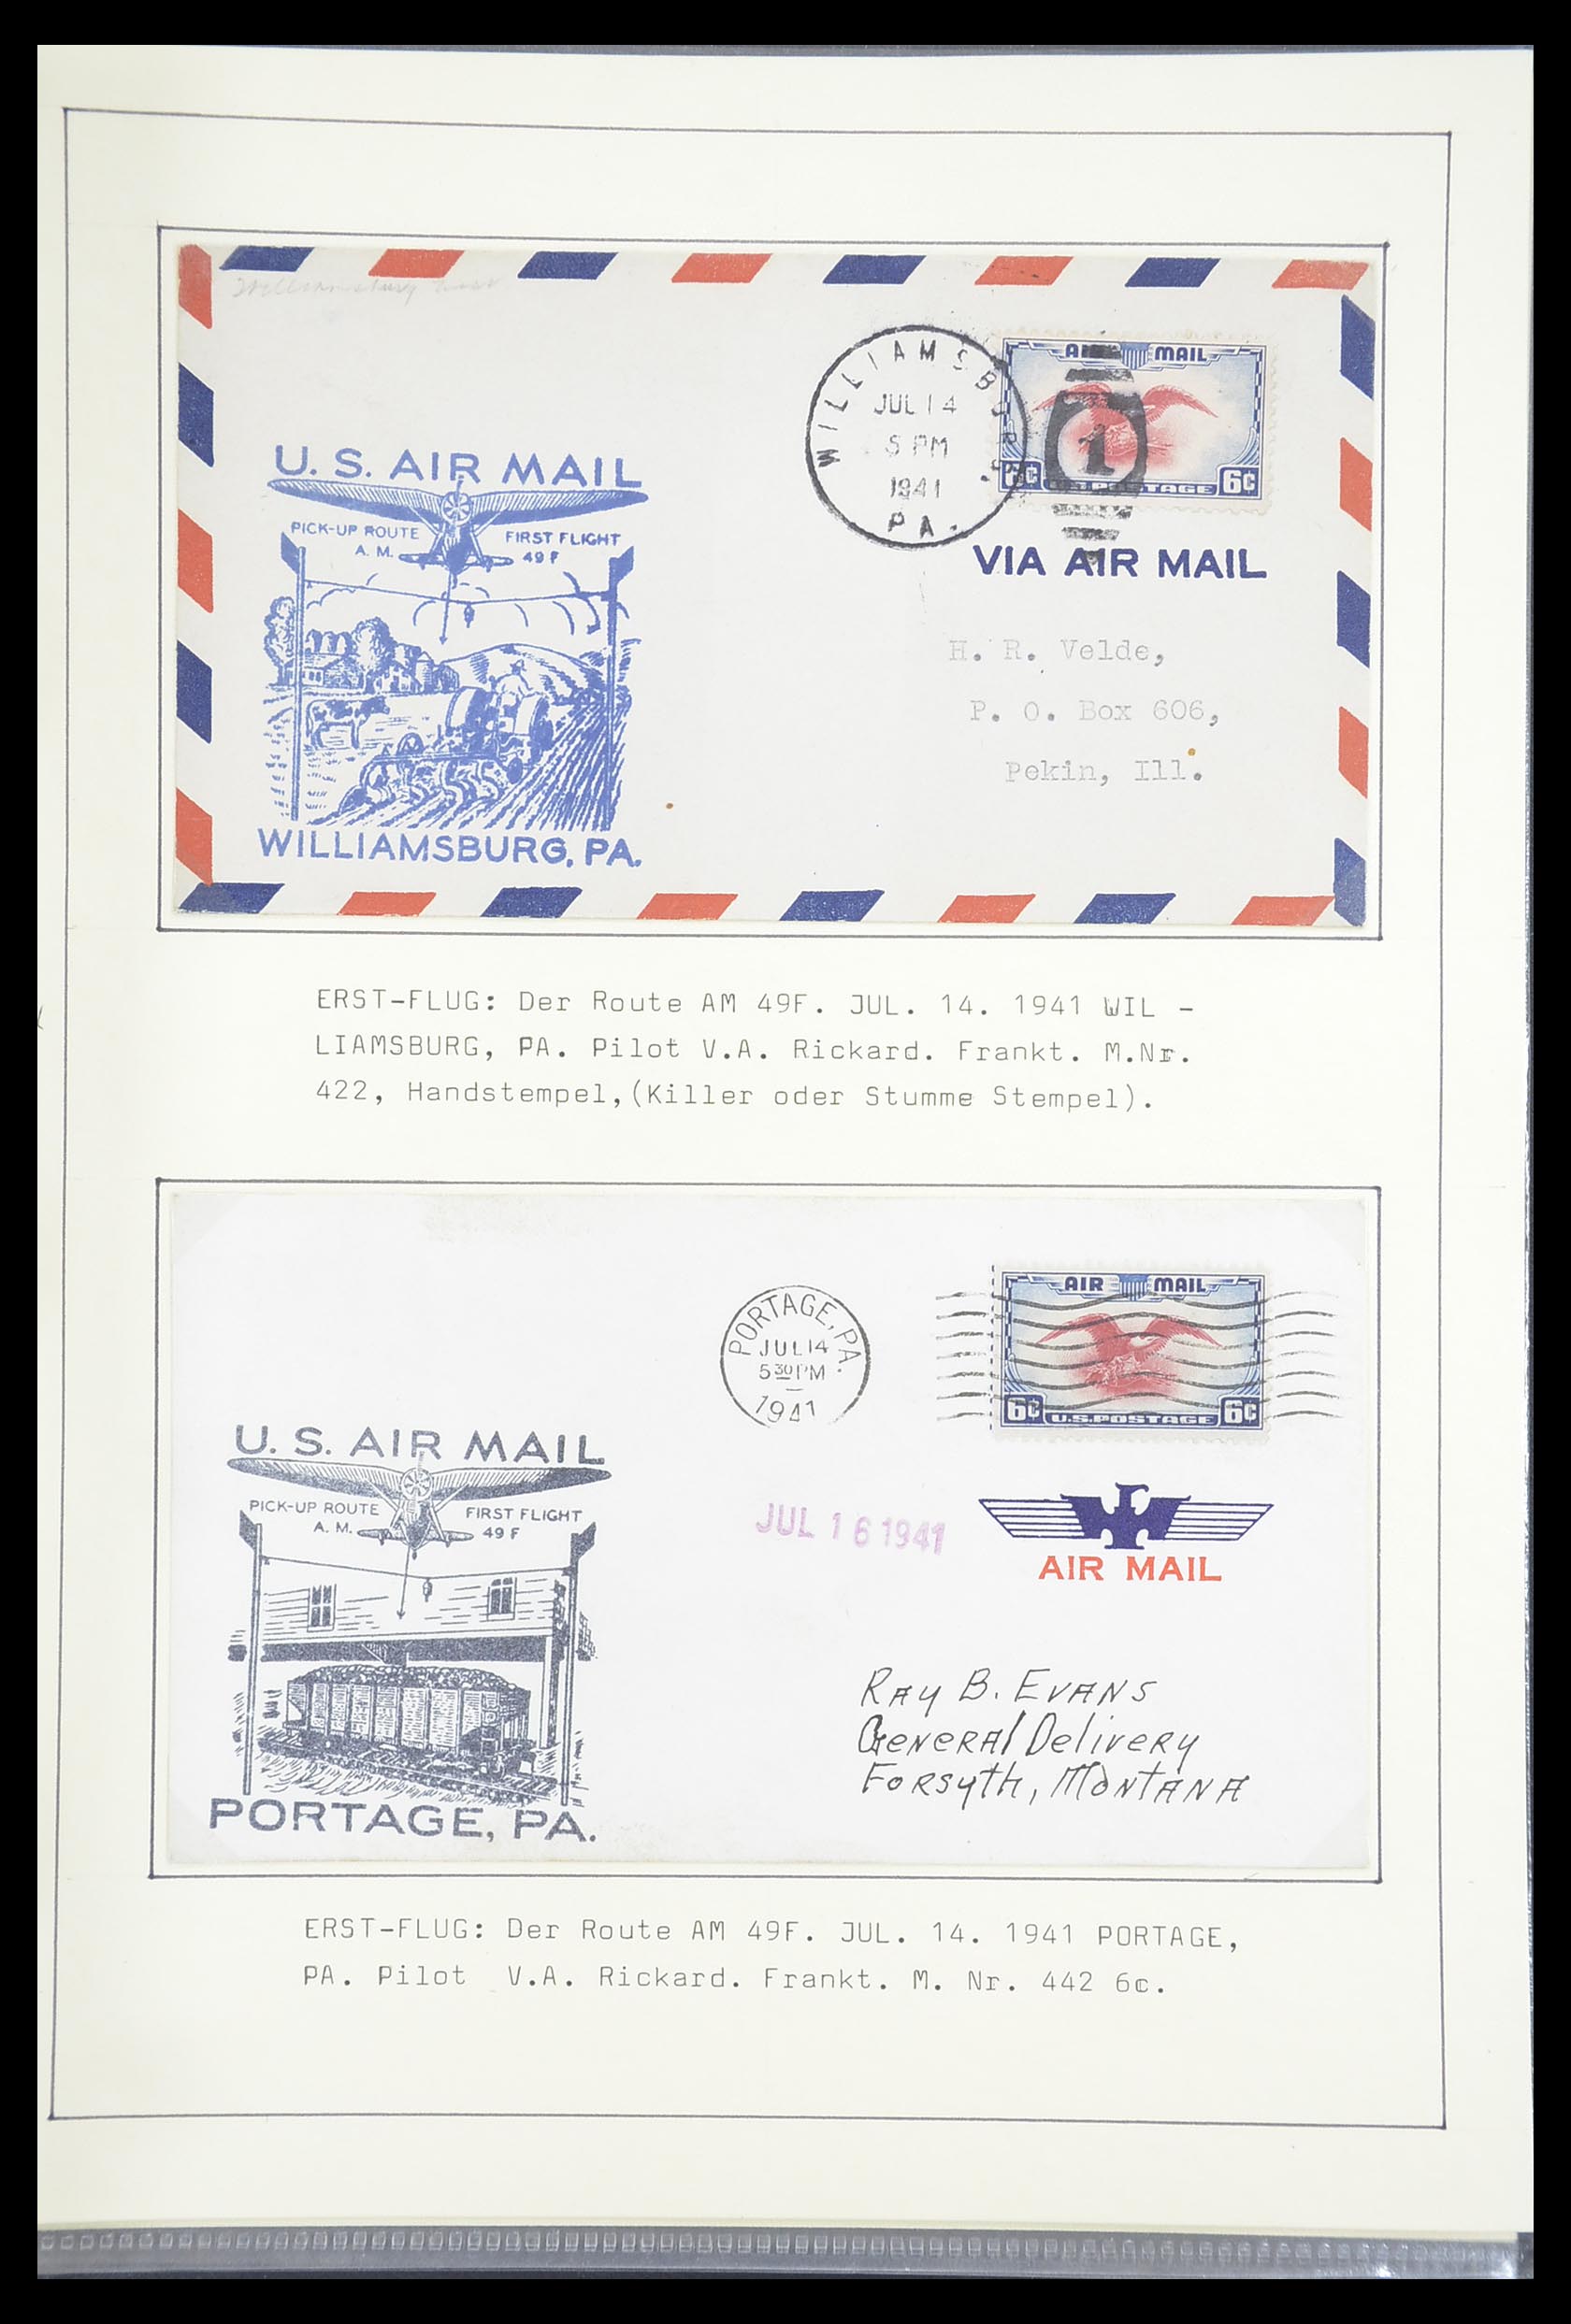 Williamsburg
U. S. AIR MAIL
PICK-UP ROUTE FIRST FLIGHT
A. M. 49 F
WILLIAMSBURG, PA.
WILLIAMSBURG
JUL 14
5 PM
1941
PA.
AIR MAIL
1
6¢ U.S. POSTAGE 6¢
VIA AIR MAIL
H. R. Velde,
P. O. Box 606,
Pekin, Ill.
ERST-FLUG: Der Route AM 49F. JUL. 14. 1941 WIL -
LIAMSBURG, PA. Pilot V.A. Rickard. Frankt. M.Nr.
422, Handstempel,(Killer oder Stumme Stempel).
PORTAGE, PA.
JUL 14
5 30 PM
1941
AIR MAIL
6¢ U.S. POSTAGE 6¢
U. S. AIR MAIL
PICK-UP ROUTE FIRST FLIGHT
A. M. 49 F
PORTAGE, PA.
JUL 16 1941
AIR MAIL
RAY B. EVANS
GENERAl DeliVERY
FORSYth, MONTANA
ERST-FLUG: Der Route AM 49F. JUL. 14. 1941 PORTAGE,
PA. Pilot V.A. Rickard. Frankt. M. Nr. 442 6c.